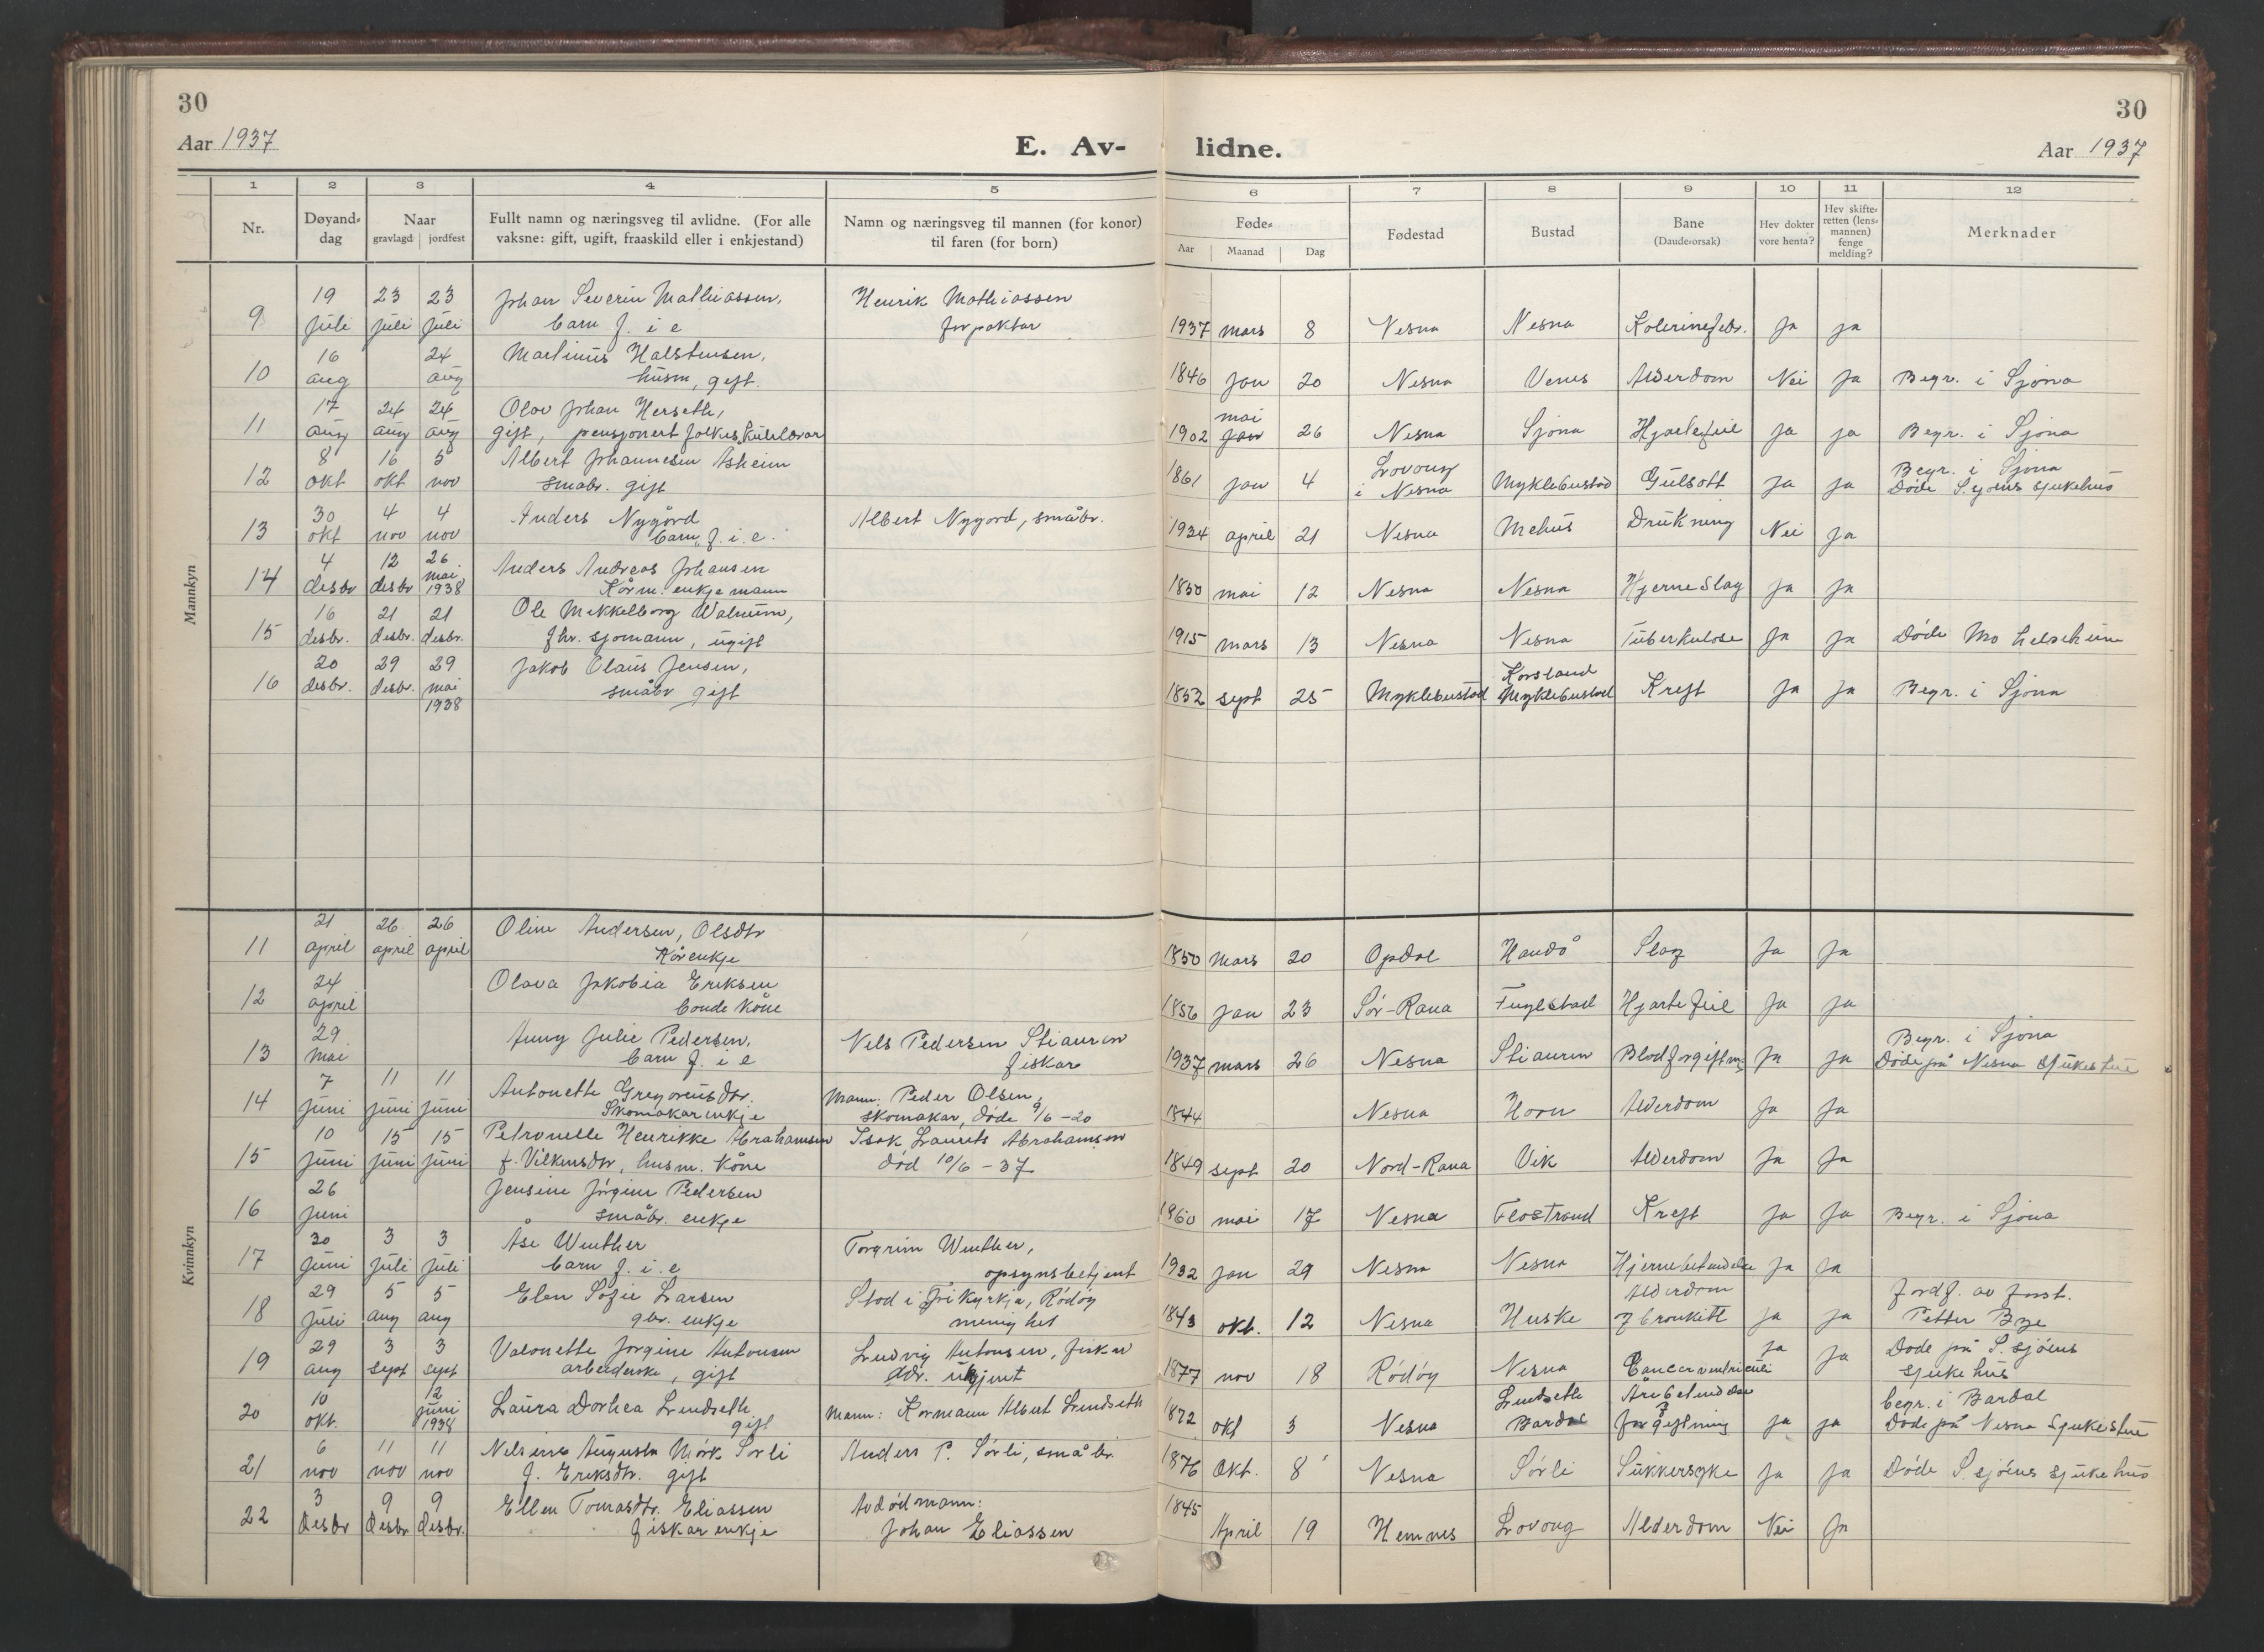 30
30
Aar 1937
E. Av-
lidne.
Aar 1937
1 2 3 4 5 6 7 8 9 10 11 12
Nr.
Døyand-
dag
Naar
gravlagd jordfest
Fullt namn og næringsveg til avlidne. (For alle
vaksne: gift, ugift, fraaskild eller i enkjestand)
Namn og næringsveg til mannen (for konor)
til faren (for born)
Føde-
Aar Maanad Dag
Fødestad
Bustad
Bane
(Daudeorsak)
Hev dokter
vore henta?
Hev skifte-
retten (lens-
mannen)
fenge
melding?
Merknader
Mannkyn
19 23 23 Johan Severin Mathiassen, Henrik Mathiassen
9 juli juli juli barn f. i e forpaktar 1937 mars 8 Nesna Nesna Ja ja
16 24 Martinus Halstensen,
10 aug aug husm, gift. 1846 jan 20 Nesna Alderdom Nei ja Begr. i Sjona
17 24 24 Olav Johan Herseth, mai
11 aug aug aug gift, pensjonert 1902 jan 26 Nesna Sjona Hjartefeil ja ja Begr. i Sjona
8 16 5 Albert Johannesen Åsheim Lovong Begr. i Sjona
12 okt okt nov småbr. gift 1861 jan 4 i Nesna Myklebustad Gulsott ja ja Døde S.sjøens sjukehus
30 4 4 Anders Nygård Albert Nygord, småbr.
13 okt nov nov barn f. i. e. 1934 april 21 Nesna Mehus Drukning Nei ja
4 12 26 Anders Andreas Johansen
14 desbr desbr mai 1938 Kårm. enkjemann 1850 mai 12 Nesna Nesna HjerneSlag ja ja
16 21 21 Ole Mekkelborg Walnum,
15 desbr. desbr. desbr. fhv. sjømann, ugift 1915 mars 13 Nesna Nesna Tuberkulose Ja ja Døde Mo helseheim
20 29 29 Jakob Olaus Jensen, Korsland
16 desbr. desbr. mai småbr gift 1852 sept 25 Myklebustad Myklebustad Kreft ja ja Begr. i Sjona
1938
Kvinnkyn
21 26 26 Oline Andersen, Olsdtr
11 april april april Kårenkje 1850 mars 20 Opdal Handå Slag ja ja
24 Olava Jakobia Eriksen
12 april bonde kone 1856 jan 23 Sør-Rana Fuglstad Hjartefeil ja ja
29 Anny Julie Pedersen, Nels Pedersen Stiauren Begr. i Sjona
13 mai barn f. i e fiskar 1937 mars 26 Nesna Stiauren Blodforgiftn. ja ja Døde på Nesna sjukestue
7 11 11 Antonette Gregoriusdtr. Mann: Peder Olsen,
14 juni juni juni Skomakarenkje skomakar, døde 9/6-20 1844 Nesna Horn Alderdom ja ja
10 15 15 Petronelle Henrikke Abrahamsen Isak Laurits Abrahamsen
15 juni juni juni f. Vilkensdtr, husm. kone død 10/6-37 1849 sept 20 Nord-Rana Vik Alderdom ja ja
26 Jensine Jørgine Pedersen
16 juni småbr. enkje 1860 mai 17 Nesna Flostrand Kreft ja ja Begr. i Sjona
30 3 3 Åse Winther Torgrim Winther,
17 juni juli juli barn f. i. e opsynsbetjent 1932 jan 29 Nesna Nesna Hjernebetendelse ja ja
29 5 5 Elen Sofie Larsen Stod i Frikyrkja, Rødøy Alderdom Jordf. av forst.
18 juli aug aug gbr. enkje menighet 1843 okt. 12 Nesna Huske bronkitt ja ja Petter Bye
29 3 3 Valonette Jørgine Antonsen Ludvig Antonsen, fisker ja Døde på S.sjøens
19 aug sept sept arbeiderske, gift adr. ukjent 1877 nov 18 Rødøy Nesna Cancer ventriculi ja sjukehus
10 12 Laura Dorhea Lindseth Mann: Kårmann Albert Lindseth Lindseth Årebetendelse begr. i Bardal
20 okt. juni gift 1872 okt 3 Nesna Bardal forgiftning ja ja Døde på Nesna Sjukestue
1938
6 11 11 Nelsine Augusta Mørk Sørli Anders P. Sørli, småbr.
21 nov nov nov f. Eriksdtr. gift 1876 okt. 8 Nesna Sørli Sukkersyke ja ja Døde S.sjøens sjukehus
3 9 9 Ellen Tomasdtr. Eliassen Avdød mann: 1845
22 desbr desbr desbr. fiskarenkje Johan Eliassen April 19 Hemnes Lovong Alderdom Nei Ja